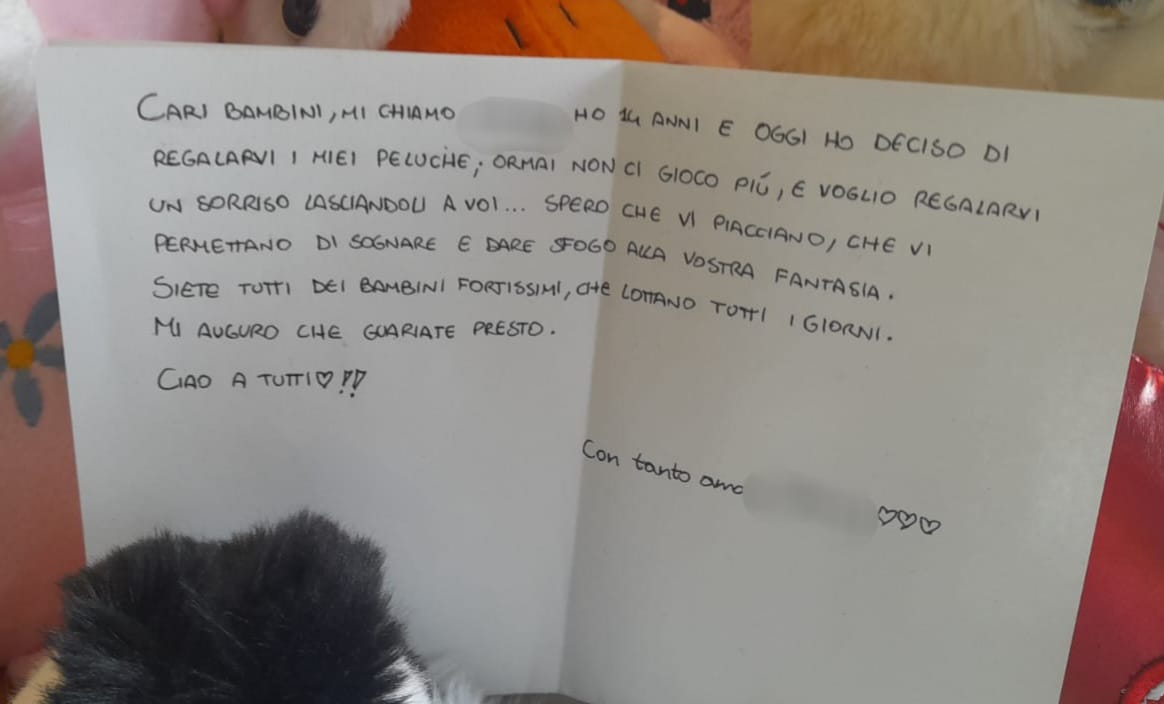 CARI BAMBINI, MI CHIAMO HO 14 ANNI E OGGI HO DECISO DI
REGALARVI I MIEI PELUCHE; ORMAI NON CI GIOCO PIÚ, E VOGLIO REGALARVI
UN SORRISO LASCIANDOLI A VOI... SPERO CHE VI PIACCIANO, CHE VI
PERMETTANO DI SOGNARE E DARE SFOGO ALLA VOSTRA FANTASIA.
SIETE TUTTI DEI BAMBINI FORTISSIMI, CHE LOTTANO TUTTI I GIORNI.
MI AUGURO CHE GUARIATE PRESTO.
CIAO A TUTTI♡!!
Con tanto amo
♡♡♡